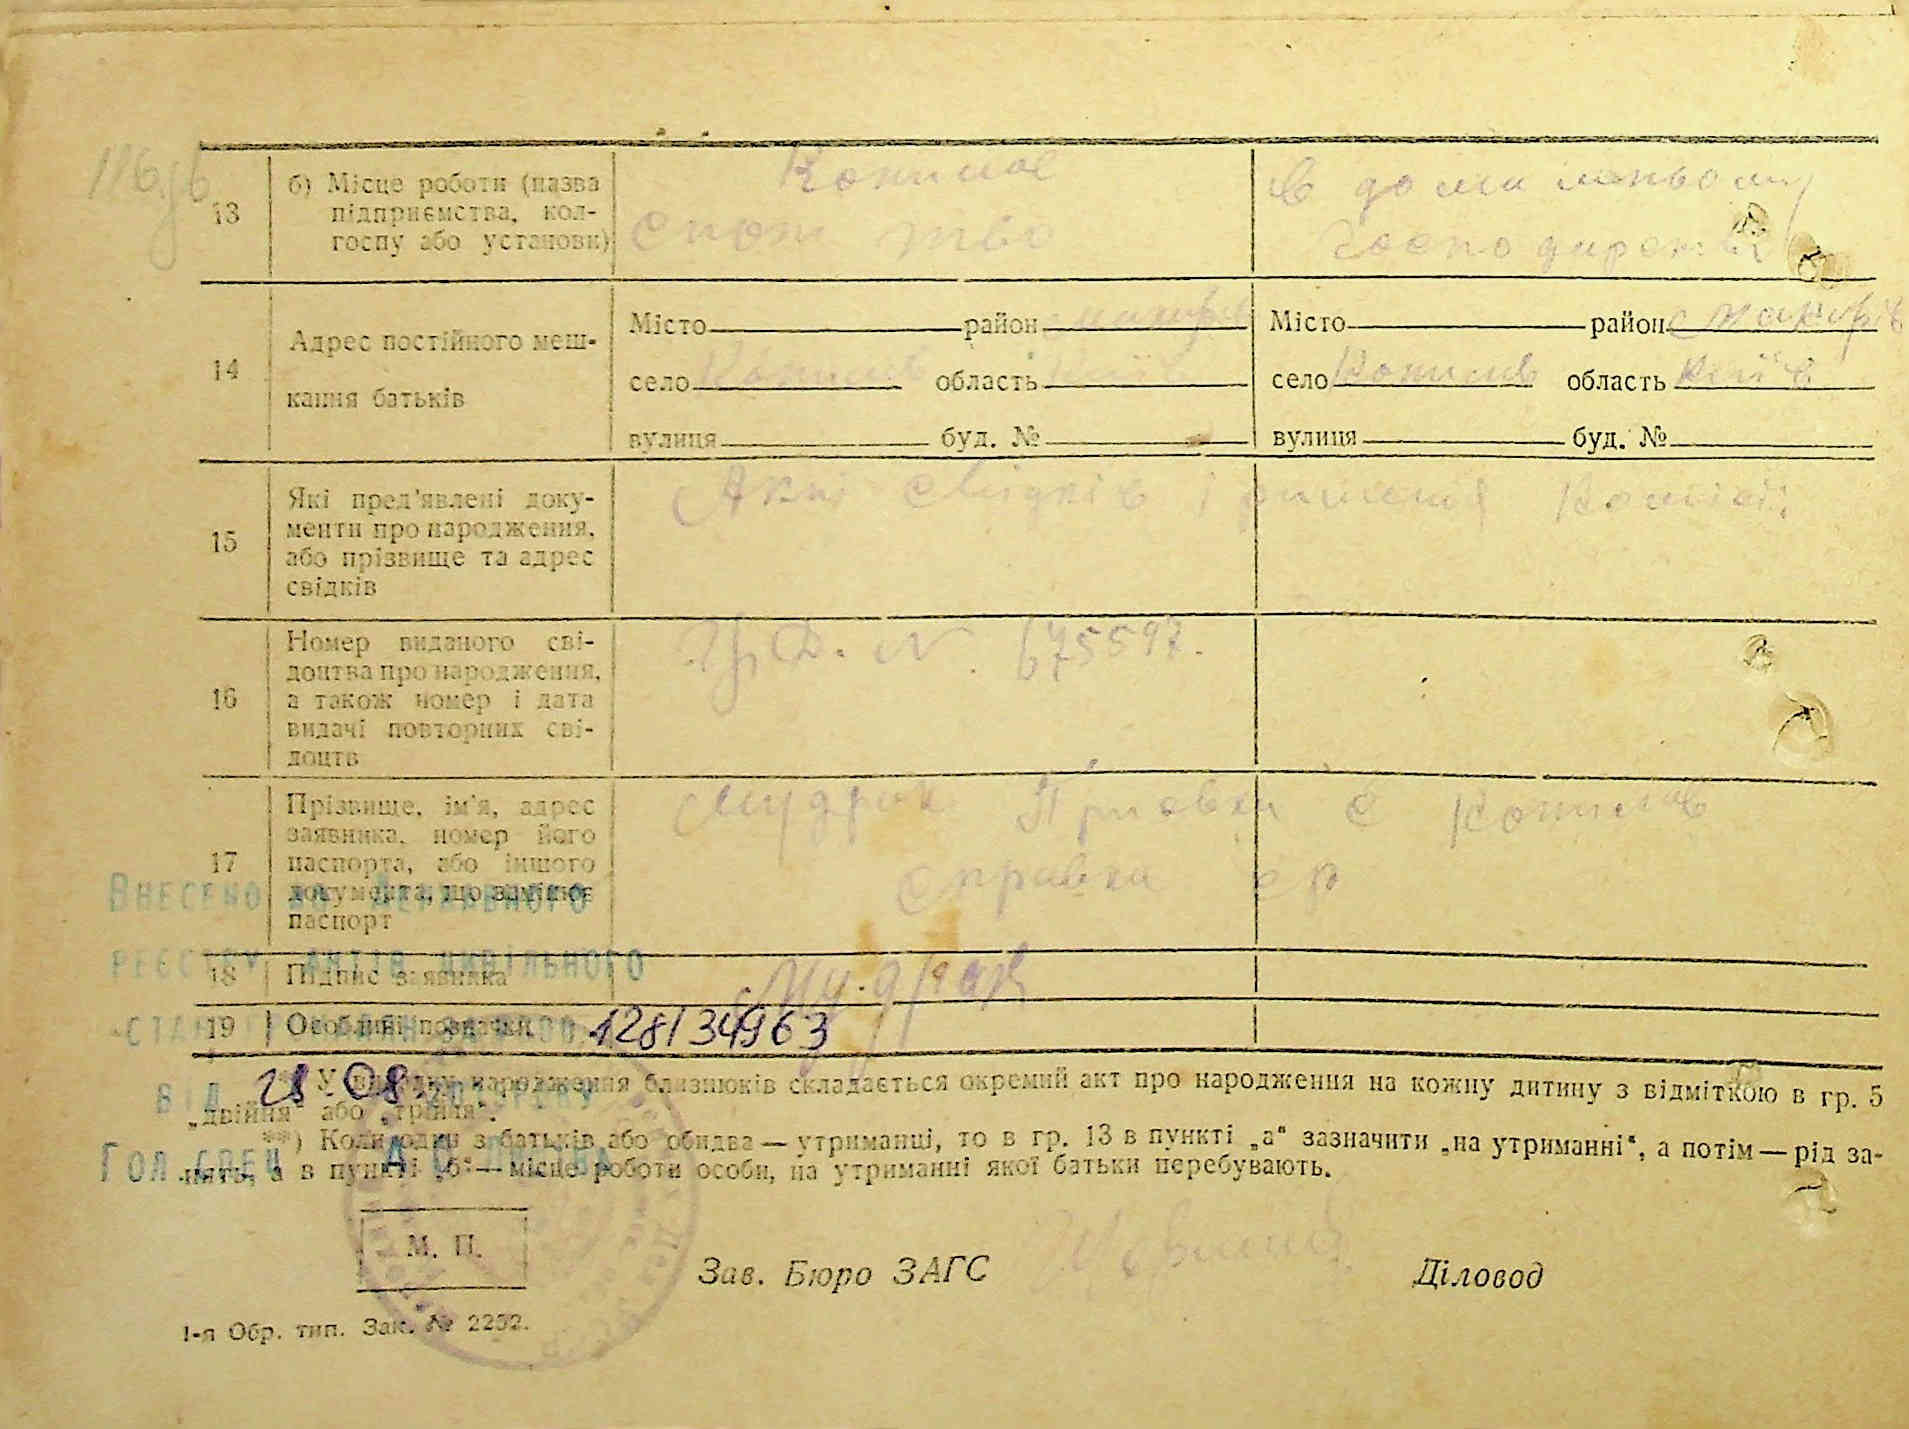 13
б) Місце роботи (назва
підприємства, кол-
госпу або установи)
Копилов
в домашньому
господарстві
14
Адрес постійного меш-
кання батьків
Місто район Макарів
село Копилів область
вулиця буд. №
Місто район Макарів
село Копилів область Київ
вулиця буд. №
15
Які пред'явлені доку-
менти про народження,
або прізвище та адрес
свідків
Акт свідків і рішення комісії
16
Номер виданого сві-
доцтва про народження,
а також номер і дата
видачі повторних сві-
доцтв
№ 675597.
17
Прізвище, ім'я, адрес
заявника, номер його
паспорта, або іншого
документа, що замінює
паспорт
Мудрак с Копилів
справка с р
Внесено до Державного
реєстру актів цивільного
18
Підпис заявника
Мудрак
19
Особливі позначки
128134963
*) У випадку народження близнюків складається окремий акт про народження на кожну дитину з відміткою в гр. 5
„двійня“ або „трійня“.
Від 28.08.
**) Коли один з батьків або обидва — утриманці, то в гр. 13 в пункті „а“ зазначити „на утриманні“, а потім — рід за-
нять, а в пункті „б“ — місце роботи особи, на утриманні якої батьки перебувають.
Гол спец
М. П.
Зав. Бюро ЗАГС
Діловод
1-я Обр. тип. Зак. № 2252.